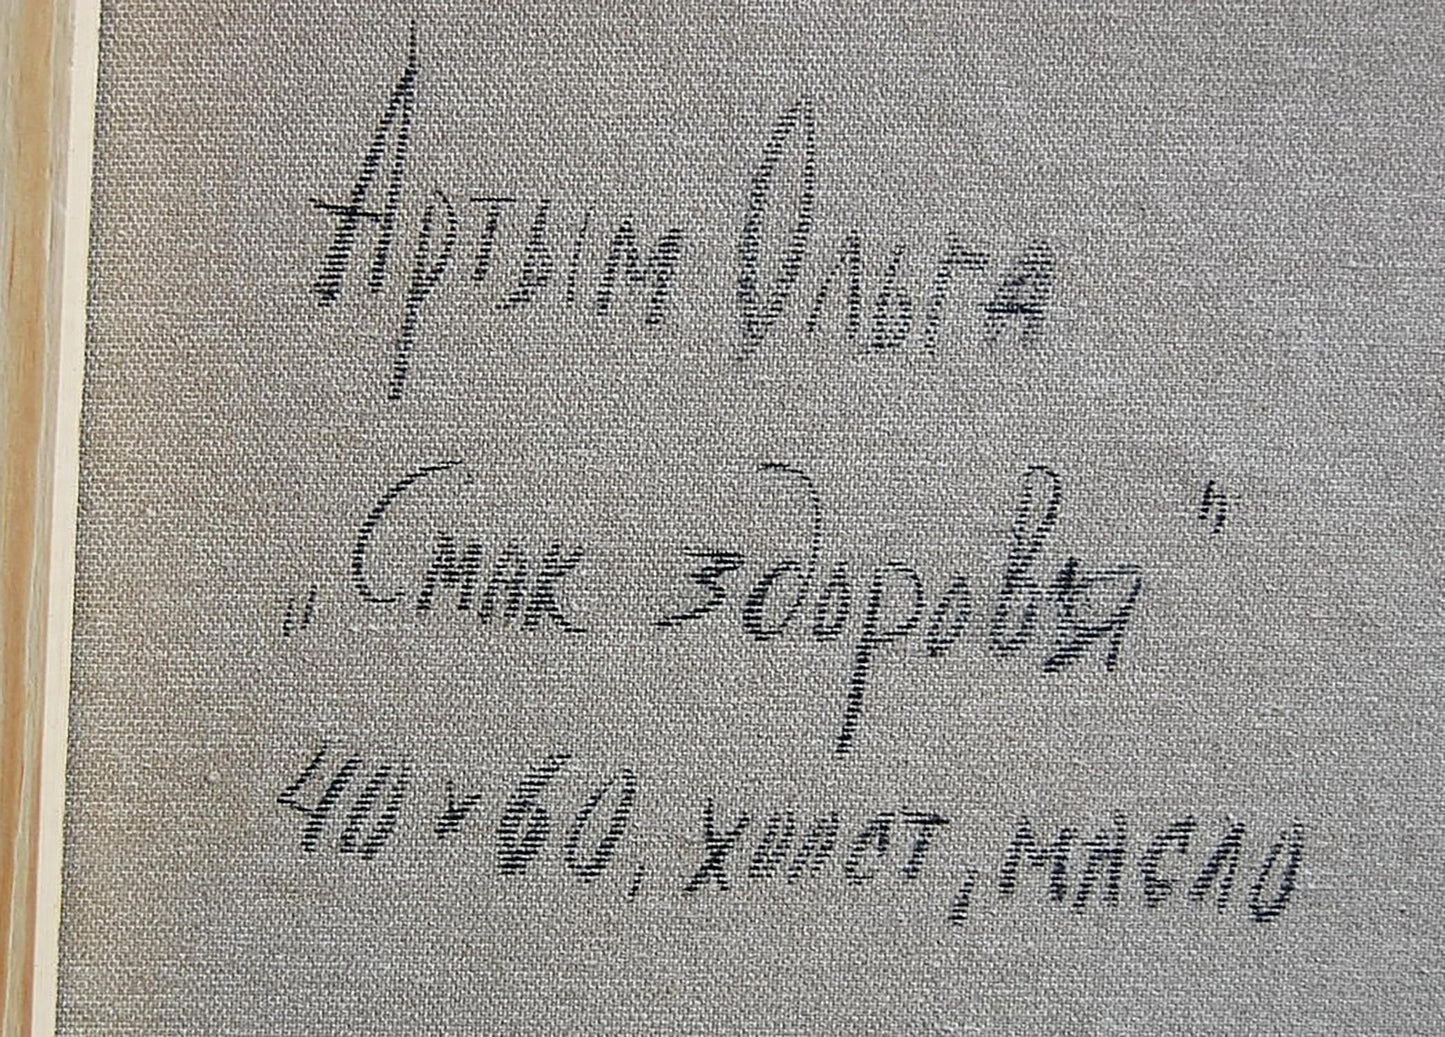 Артым Ольга
„Смак здоровья"
40 × 60, холст, масло